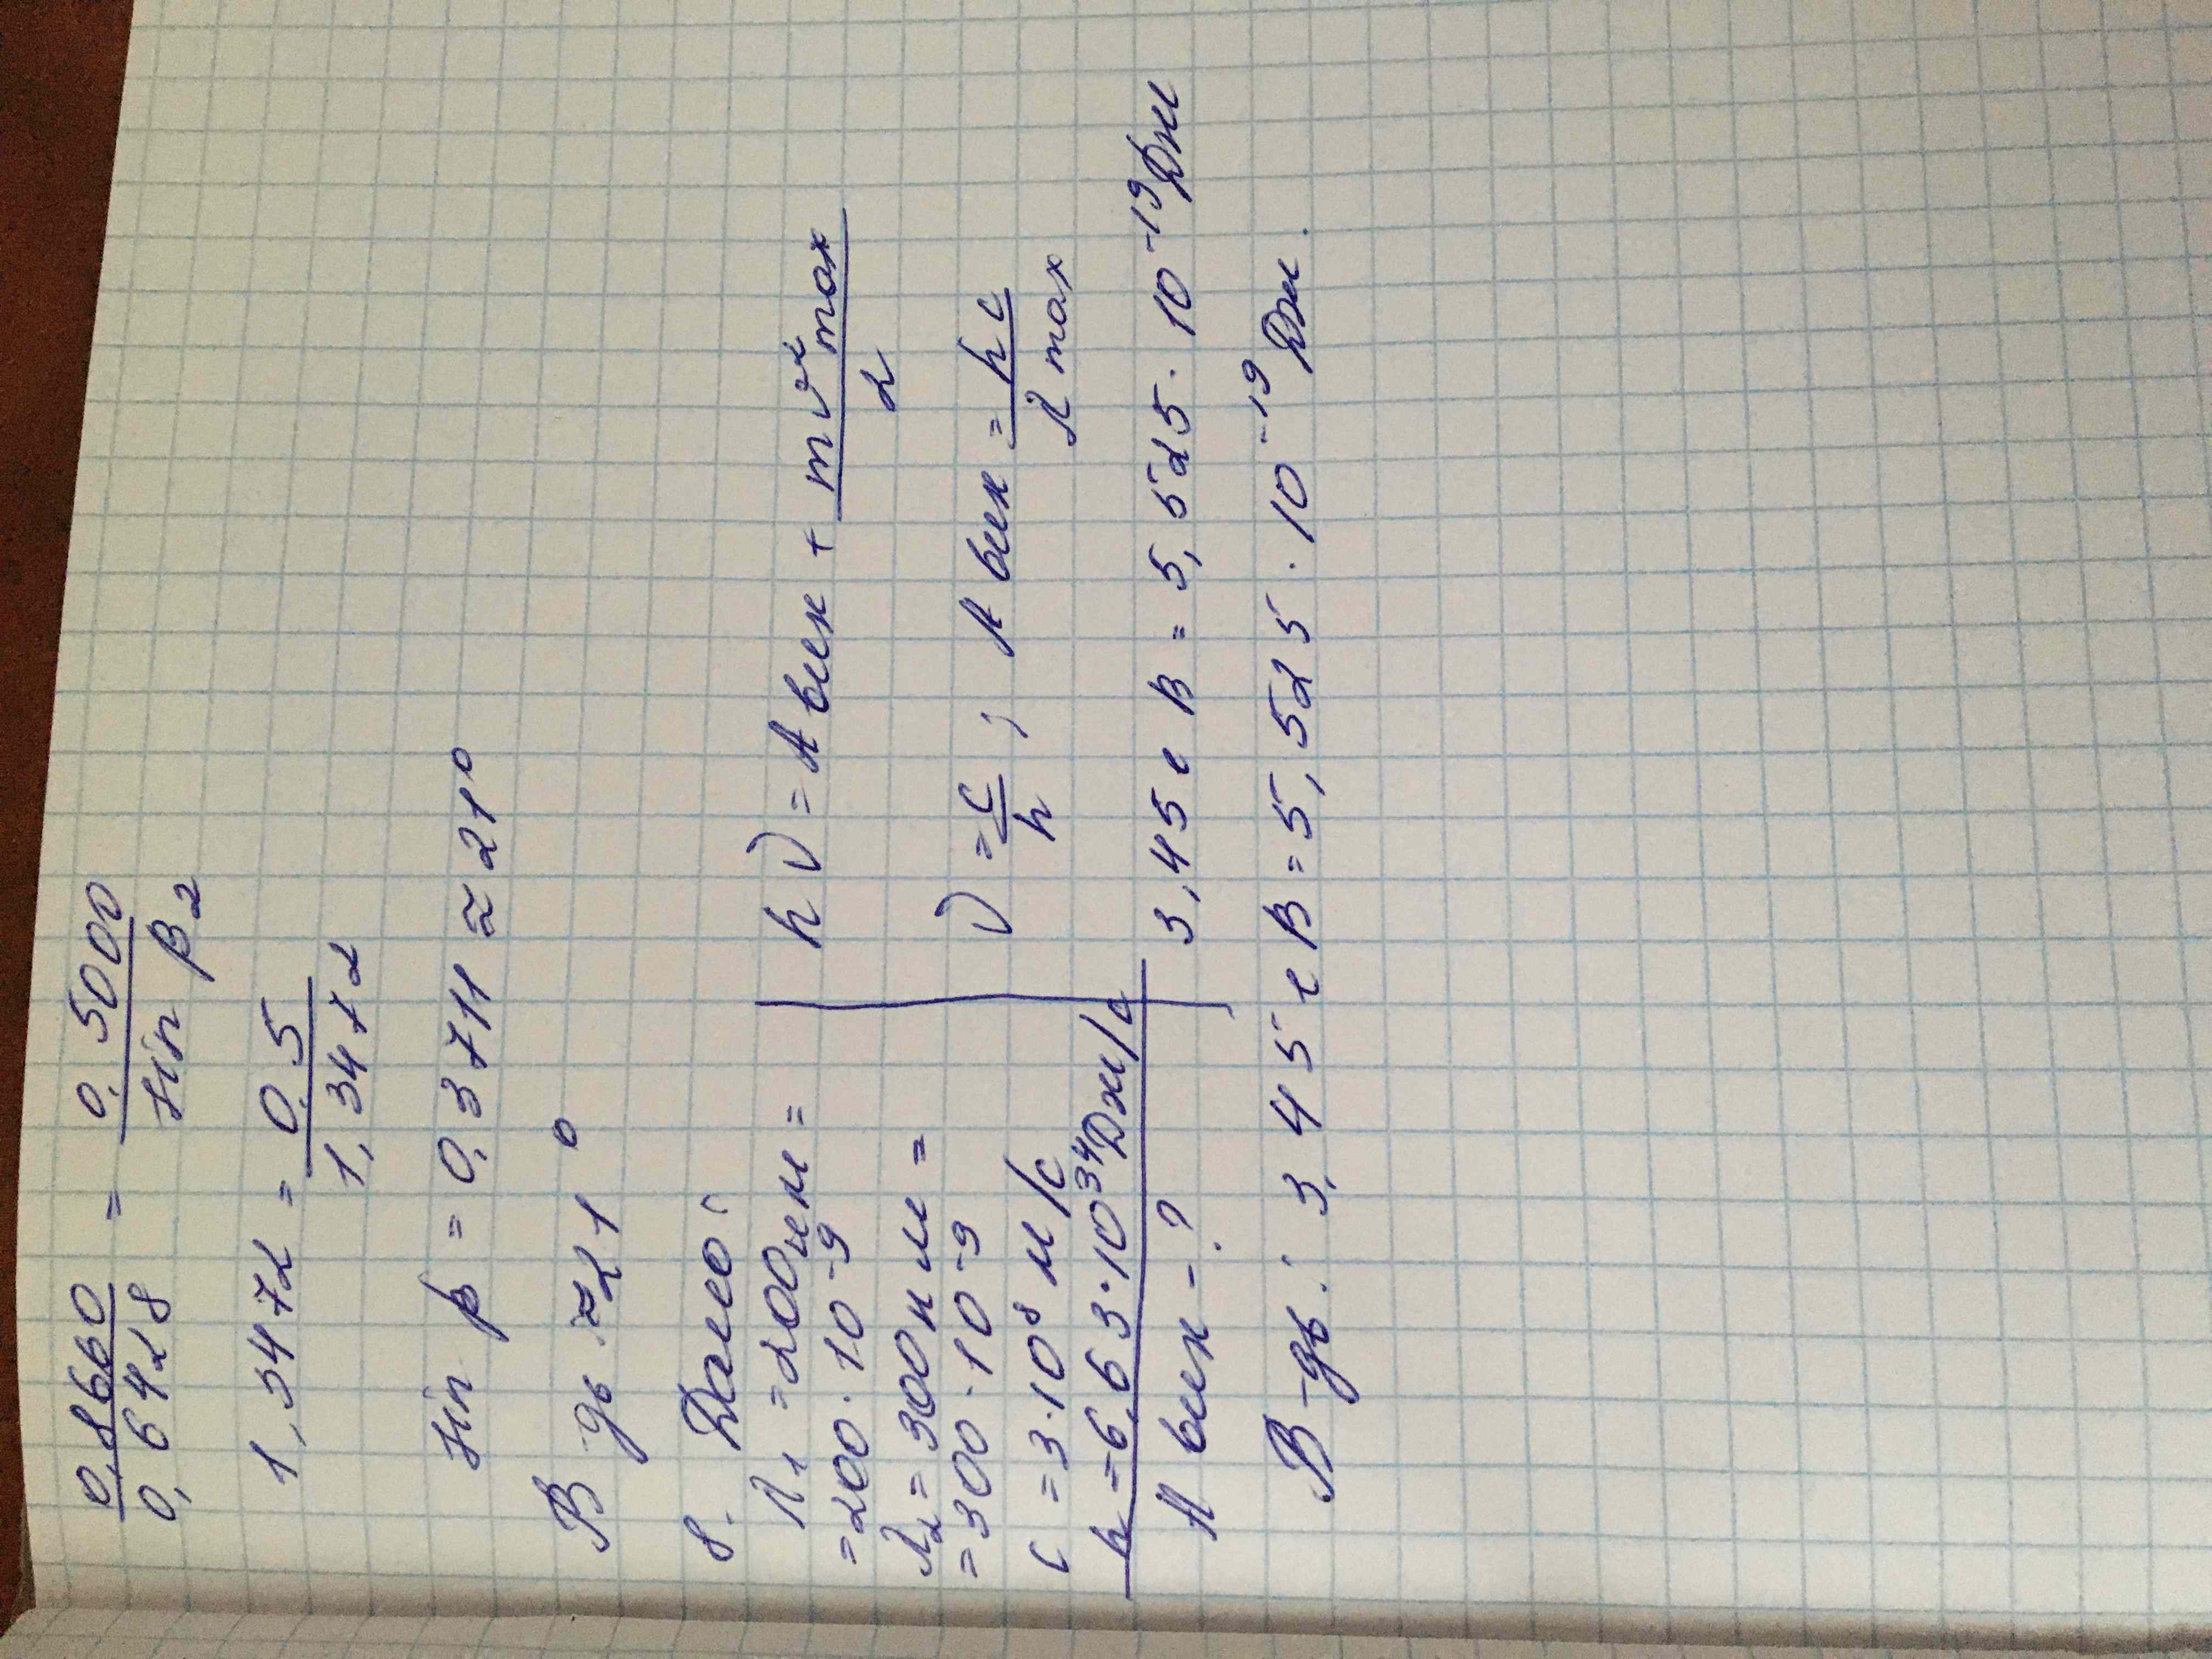 0,8660/0,6428 = 0,5000/sin β2
1,3472 = 0,5/1,3472
sin β = 0,3711 ≈ 21°
В-дь: ≈21°
8. Дано:
λ1 = 200нм =
= 200·10^-9
λ2 = 300нм =
= 300·10^-9
c = 3·10^8 м/с
h = 6,63·10^34 Дж/с
A вих - ?
hν = A вих + mv^2max/2
ν = c/h ; A вих = hc/λ max
3,45 еВ = 5,525·10^-19 Дж
В-дь: 3,45 еВ = 5,525·10^-19 Дж.